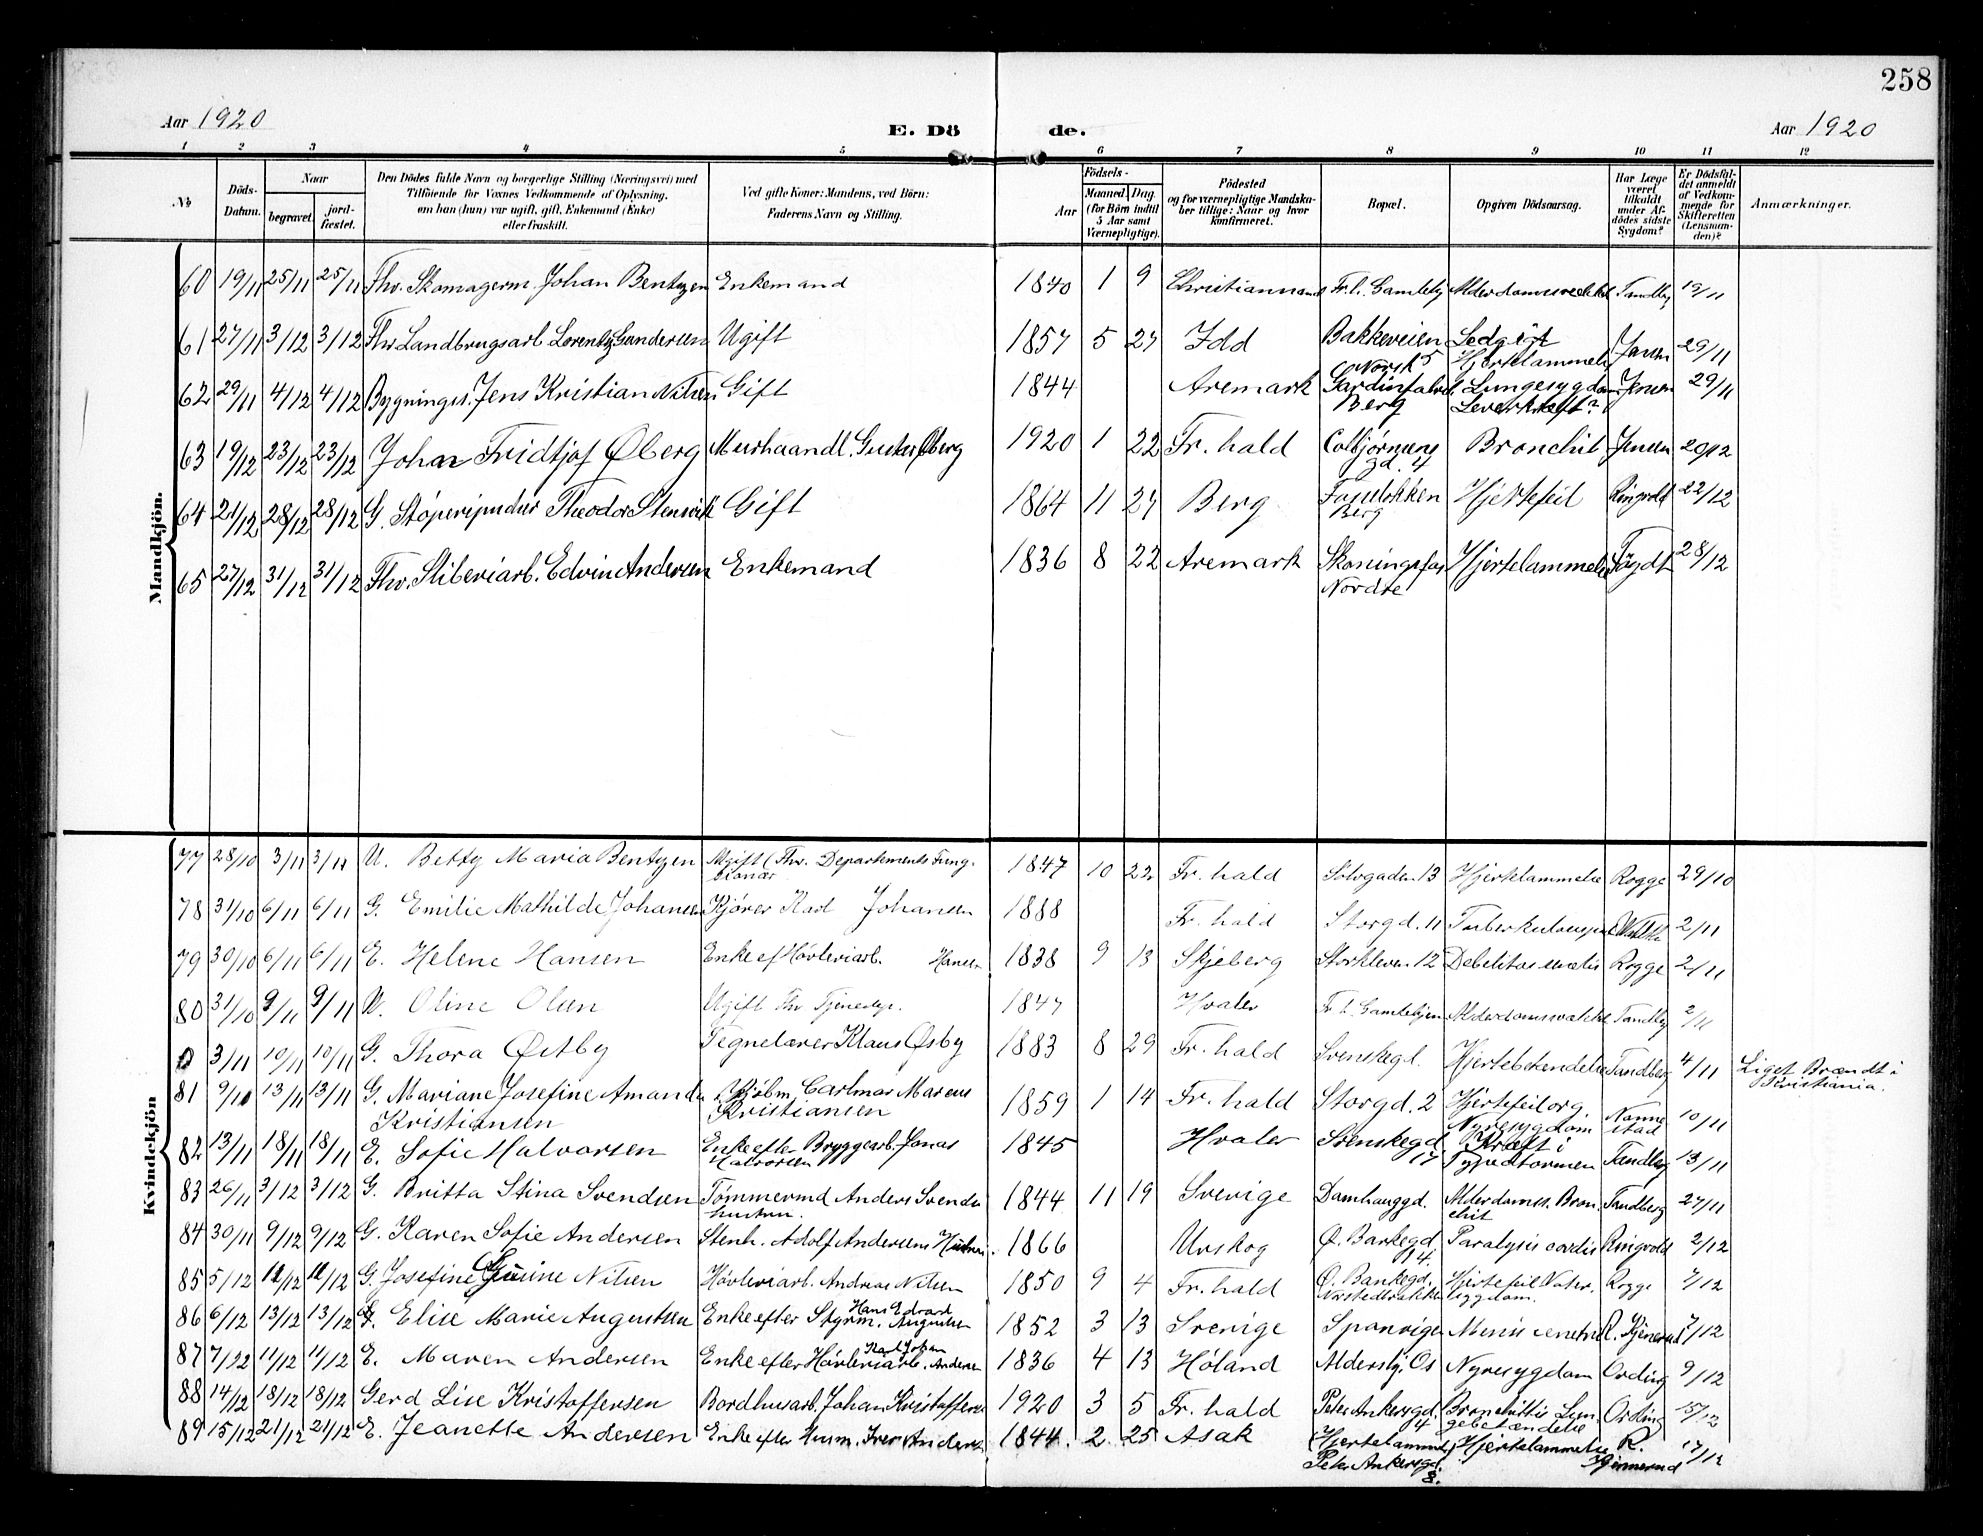 258
Aar 1920
E. Dö de.
Aar 1920
1 2 3 4 5 6 7 8 9 10 11 12
№ Döds-Datum. Naar begravet. jord-fæstet. Den Dödes fulde Navn og borgerlige Stilling (Næringsvei) med Tilföiende for Voxnes Vedkommende af Oplysning, om han (hun) var ugift, gift, Enkemand (Enke) eller fraskilt. Ved gifte Koner: Mandens, ved Börn: Faderens Navn og Stilling. Födsels- Aar Maaned. Dag. (for Börn indtil 5 Aar samt Værnepligtige). Födested og for værnepligtige Mandskaber tillige: Naar og hvor konfirmeret. Bopæl. Opgiven Dödsaarsag. Har Læge været tilkaldt under Afdödes sidste Sygdom? Er Dödsfaldet anmeldt af Vedkommende for Skifteretten (Lensmanden)? Anmærkninger.
Mandkjön.
60 19/11 25/11 25/11 Fhv. Skomagerm. Johan Bentzen Enkemand 1840 1 9 Christiansand Fr.h. Gamlehj Alderdomssvækkel Tandberg 19/11
61 27/11 3/12 3/12 Fhv. Landbrugsarb. Lorentz Gundersen Ugift 1857 5 27 Idd Bakkeveien 5 Ledgigt Hjertelammelse Jensen 29/11
62 29/11 4/12 4/12 Bygnings. Jens Kristian Nilsen Gift 1844 Aremark Norsk Gardinfabrik Berg Lungesygdom Leverkræft? Jensen 29/11
63 19/12 23/12 23/12 Johan Fridtjof Øberg Murhaandl. Gustav Øberg 1920 1 22 Fr. hald Colbjørnsens gd. 4 Bronchit Jensen 20/12
64 21/12 28/12 28/12 G. Theodor Stensvik Gift 1864 11 27 Berg Berg Hjertefeil Ringvold 22/12
65 27/12 31/12 31/12 Fhv. Sliberiarb. Edvin Andersen Enkemand 1836 8 22 Aremark Skoningsfos Nordre Hjertelammelse 28/12
Kvindekjön
77 28/10 3/11 3/11 U. Betty Maria Bentzen Ugift (Fhv. Departements Fungtionær 1847 10 22 Fr. hald Solvgaden 13 Hjertelammelse Rogge 29/10
78 31/10 6/11 6/11 G. Emilie Mathilde Johansen Kjører Karl Johansen 1888 Fr. hald Storgd. 11 2/11
79 30/10 6/11 6/11 E. Helene Hansen Enke ef Høvleriarb. Hansen 1838 9 13 Skjeberg Storkleven 12 Debelitas senelis Rogge 2/11
80 31/10 9/11 9/11 U. Oline Olsen Ugift Fhv. Tjenestep. 1847 Hvaler Fr.h. Gamlehjem Alderdomssvækkel Tandberg 2/11
0 3/11 10/11 10/11 G. Thora Østby Tegnelærer Klaus Øsby 1883 8 29 Fr. hald Svenskegd. Hjertebetændelse Tandberg 4/11 Liget Brændt i Kristiania.
81 9/10 13/11 13/11 G. Mariane Josefine Amanda Kristiansen Kjøbm. Carlmar Marcus Kristiansen 1859 1 14 Fr. hald Storgd. 2 Hjertefeil og Nyresygdom Nannestad 10/11
82 13/11 18/11 18/11 E. Sofie Halvorsen Enke efter Bryggearb. Jonas Halvorsen 1845 Hvaler Svenskegd. 17 Kræft i Tykedtarmen Tandberg 13/11
83 26/11 3/12 3/12 G. Britta Stina Svendsen Tømmermd Anders Svendsens hustru. 1844 11 19 Sverige Damhauggd. Alderdomss. Bronchit Tandberg 27/11
84 30/11 9/12 9/12 G. Karen Sofie Andersen Stenh. Adolf Andersens Hustru. 1866 Urskog Ø. Bankegd. 14. Paralysis cordis Ringvold 2/12
85 5/12 12/12 12/12 G. Josefine Gusine Nilsen Høvleriarb. Andreas Nilsen 1850 9 4 Fr. hald Ø. Bankegd. Hjertefeil sygdom. Rogge 7/12
86 6/12 13/12 13/12 E. Elise Marie Augustsen Enke efter Styrm. Hans Edvard Augustsen 1852 3 13 Sverige Sponvigen R. Stjernerud 7/12
87 7/22 11/12 11/12 E. Maren Andersen Enke efter Høvleriarb. Karl Johan Andersen 1836 4 13 Høland Aldershj. Os Nyresygdom Ording 9/12
88 14/12 18/12 18/12 Gerd Lise Kristoffersen Bordhusarb. Johan Kristoffersen 1920 3 5 Fr. hald Peter Ankersgd. 4 Bronchittis Lungebetændelse Ording 15/12
89 15/12 21/12 21/12 E. Jeanette Andersen Enke efter Husm. Iver Andersen 1844. 2. 25 Asak (Hjertelammels) Peter Ankersgd. 8. Hjertelammelse R. Stjernerud 17/12